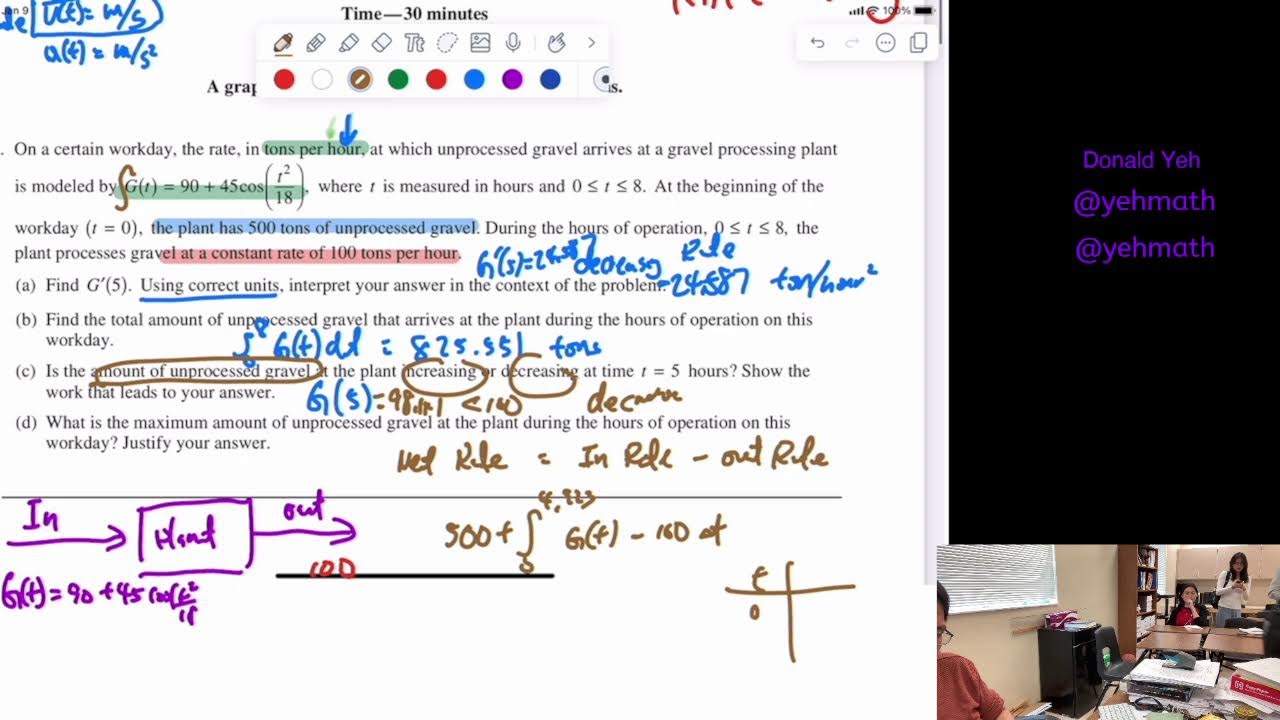 Jan 9
100%
v(t) = m/s
a(t) = m/s²
Time—30 minutes
Tt
A grap
s.
. On a certain workday, the rate, in tons per hour, at which unprocessed gravel arrives at a gravel processing plant
is modeled by ∫G(t) = 90 + 45cos(t²/18), where t is measured in hours and 0 ≤ t ≤ 8. At the beginning of the
workday (t = 0), the plant has 500 tons of unprocessed gravel. During the hours of operation, 0 ≤ t ≤ 8, the
plant processes gravel at a constant rate of 100 tons per hour.
G'(5)=24.587 decreasing
(a) Find G′(5). Using correct units, interpret your answer in the context of the problem.
-24.587 ton/hour²
(b) Find the total amount of unprocessed gravel that arrives at the plant during the hours of operation on this
workday.
∫₀⁸ G(t)dt = 825.551 tons
(c) Is the amount of unprocessed gravel at the plant increasing or decreasing at time t = 5 hours? Show the
work that leads to your answer.
G(5) = 98.141 < 100
(d) What is the maximum amount of unprocessed gravel at the plant during the hours of operation on this
workday? Justify your answer.
= In - out
In
Plant
out
100
G(t) = 90 + 45 cos(t²/18
500 + ∫ G(t) - 100 dt
t
0
Donald Yeh
@yehmath
@yehmath